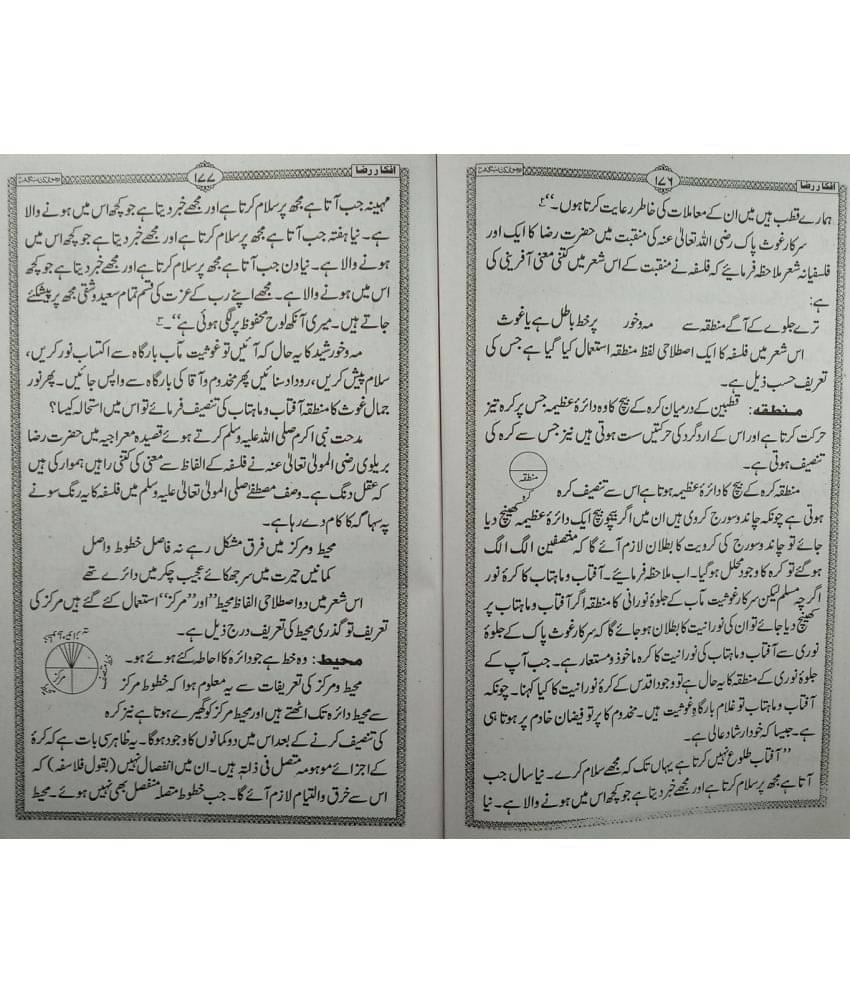 افکار رضا
۱۷۶
ہمارے قطب ہیں میں ان کے معاملات کی خاطر رعایت کرتا ہوں۔“
سرکار غوث پاک رضی اللہ تعالیٰ عنہ کی منقبت میں حضرت رضا کا ایک اور
فلسفیانہ شعر ملاحظہ فرمائیے کہ فلسفہ نے منقبت کے اس شعر میں کتنی معنی آفرینی کی
ہے:
ترے جلوے کے آگے منطقہ سے مہ و خور پر خط باطل ہے یا غوث
اس شعر میں فلسفہ کا ایک اصطلاحی لفظ منطقہ استعمال کیا گیا ہے جس کی
تعریف حسب ذیل ہے۔
منطقہ: قطبین کے درمیان کرہ کے بیچ کا وہ دائرۂ عظیمہ جس پر کرہ تیز
حرکت کرتا ہے اور اس کے ارد گرد کی حرکتیں ست ہوتی ہیں نیز جس سے کرہ کی
تنصیف ہوتی ہے۔
منطقہ
کرہ
منطقہ کرہ کے بیچ کا دائرۂ عظیمہ ہوتا ہے اس سے تنصیف کرہ
ہوتی ہے چونکہ چاند و سورج کروی ہیں ان میں اگر بیچو بیچ ایک دائرۂ عظیمہ کھینچ دیا
جائے تو چاند و سورج کی کرویت کا بطلان لازم آئے گا کہ منصفین الگ الگ
ہو گئے تو کرہ کا وجود مختل ہو گیا۔ اب ملاحظہ فرمائیے۔ آفتاب و ماہتاب کا کرۂ نور
اگر چہ مسلم لیکن سرکار غوثیت مآب کے جلوۂ نورانی کا منطقہ اگر آفتاب و ماہتاب پر
کھینچ دیا جائے تو ان کی نورانیت کا بطلان ہو جائے گا کہ سرکار غوث پاک کے جلوۂ
نوری سے آفتاب و ماہتاب کی نورانیت کا کرہ ماخوذ و مستعار ہے۔ جب آپ کے
جلوۂ نوری کے منطقہ کا یہ حال ہے تو وجود اقدس کے کرۂ نورانیت کا کیا کہنا۔ چونکہ
آفتاب و ماہتاب تو غلام بارگاہ غوثیت ہیں۔ مخدوم کا پر تو فیضان خادم پر ہوتا ہی
ہے۔ جیسا کہ خود ارشاد عالی ہے۔
”آفتاب طلوع نہیں کرتا ہے یہاں تک کہ مجھے سلام کرے۔ نیا سال جب
آتا ہے مجھ پر سلام کرتا ہے اور مجھے خبر دیتا ہے جو کچھ اس میں ہونے والا ہے۔ نیا
افکار رضا
۱۷۷
مہینہ جب آتا ہے مجھ پر سلام کرتا ہے اور مجھے خبر دیتا ہے جو کچھ اس میں ہونے والا
ہے۔ نیا ہفتہ جب آتا ہے مجھ پر سلام کرتا ہے اور مجھے خبر دیتا ہے جو کچھ اس میں
ہونے والا ہے۔ نیا دن جب آتا ہے مجھ پر سلام کرتا ہے اور مجھے خبر دیتا ہے جو کچھ
اس میں ہونے والا ہے۔ مجھے اپنے رب کے عزت کی قسم تمام سعید و شقی مجھ پر پیش کئے
جاتے ہیں۔ میری آنکھ لوح محفوظ پر لگی ہوئی ہے“۔
مہ و خورشید کا یہ حال کہ آئیں تو غوثیت مآب بارگاہ سے اکتساب نور کریں،
سلام پیش کریں، روداد سنائیں پھر مخدوم و آقا کی بارگاہ سے واپس جائیں۔ پھر نور
جمال غوث کا منطقہ آفتاب و ماہتاب کی تنصیف فرمائے تو اس میں استحالہ کیسا؟
مدحت نبی اکرم صلی اللہ علیہ وسلم کرتے ہوئے قصیدہ معراجیہ میں حضرت رضا
بریلوی رضی المولی تعالیٰ عنہ نے فلسفہ کے الفاظ سے معنی کی کتنی راہیں ہموار کی ہیں
کہ عقل دنگ ہے۔ وصف مصطفےٰ صلی المولیٰ تعالیٰ علیہ وسلم میں فلسفہ کا یہ رنگ سونے
پہ سہاگہ کا کام دے رہا ہے۔
محیط و مرکز میں فرق مشکل رہے نہ فاصل خطوط واصل
کمانیں حیرت میں سر جھکائے عجیب چکر میں دائرے تھے
اس شعر میں دو اصطلاحی الفاظ محیط“ اور ”مرکز“ استعمال کئے گئے ہیں مرکز کی
تعریف تو گذری محیط کی تعریف درج ذیل ہے۔
محیط: وہ خط ہے جو دائرہ کا احاطہ کئے ہوئے ہو۔
مرکز
محیط و مرکز کی تعریفات سے یہ معلوم ہوا کہ خطوط مرکز
سے محیط دائرہ تک اٹھتے ہیں اور محیط مرکز کو گھیرے ہوتا ہے نیز کرہ
کی تنصیف کرنے کے بعد اس میں دو کمانوں کا وجود ہوگا۔ یہ ظاہری بات ہے کہ کرۂ
کے اجزائے موہومہ متصل فی ذاتہ ہیں۔ ان میں انفصال نہیں (بقول فلاسفہ) کہ
اس سے خرق و التیام لازم آئے گا۔ جب خطوط متصلہ منفصل بھی نہیں ہوئے۔ محیط